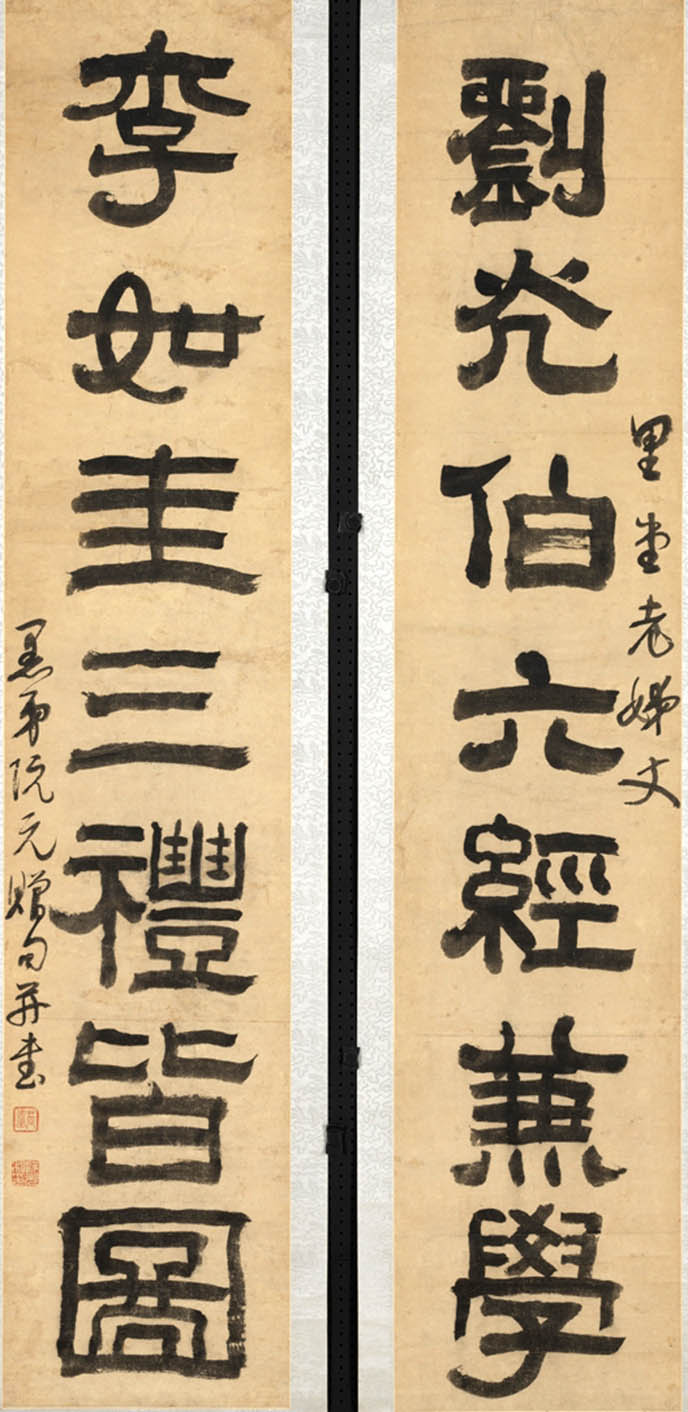 里堂老姊丈
劉光伯六經兼學
李如圭三禮皆圖
愚弟阮元贈句并書